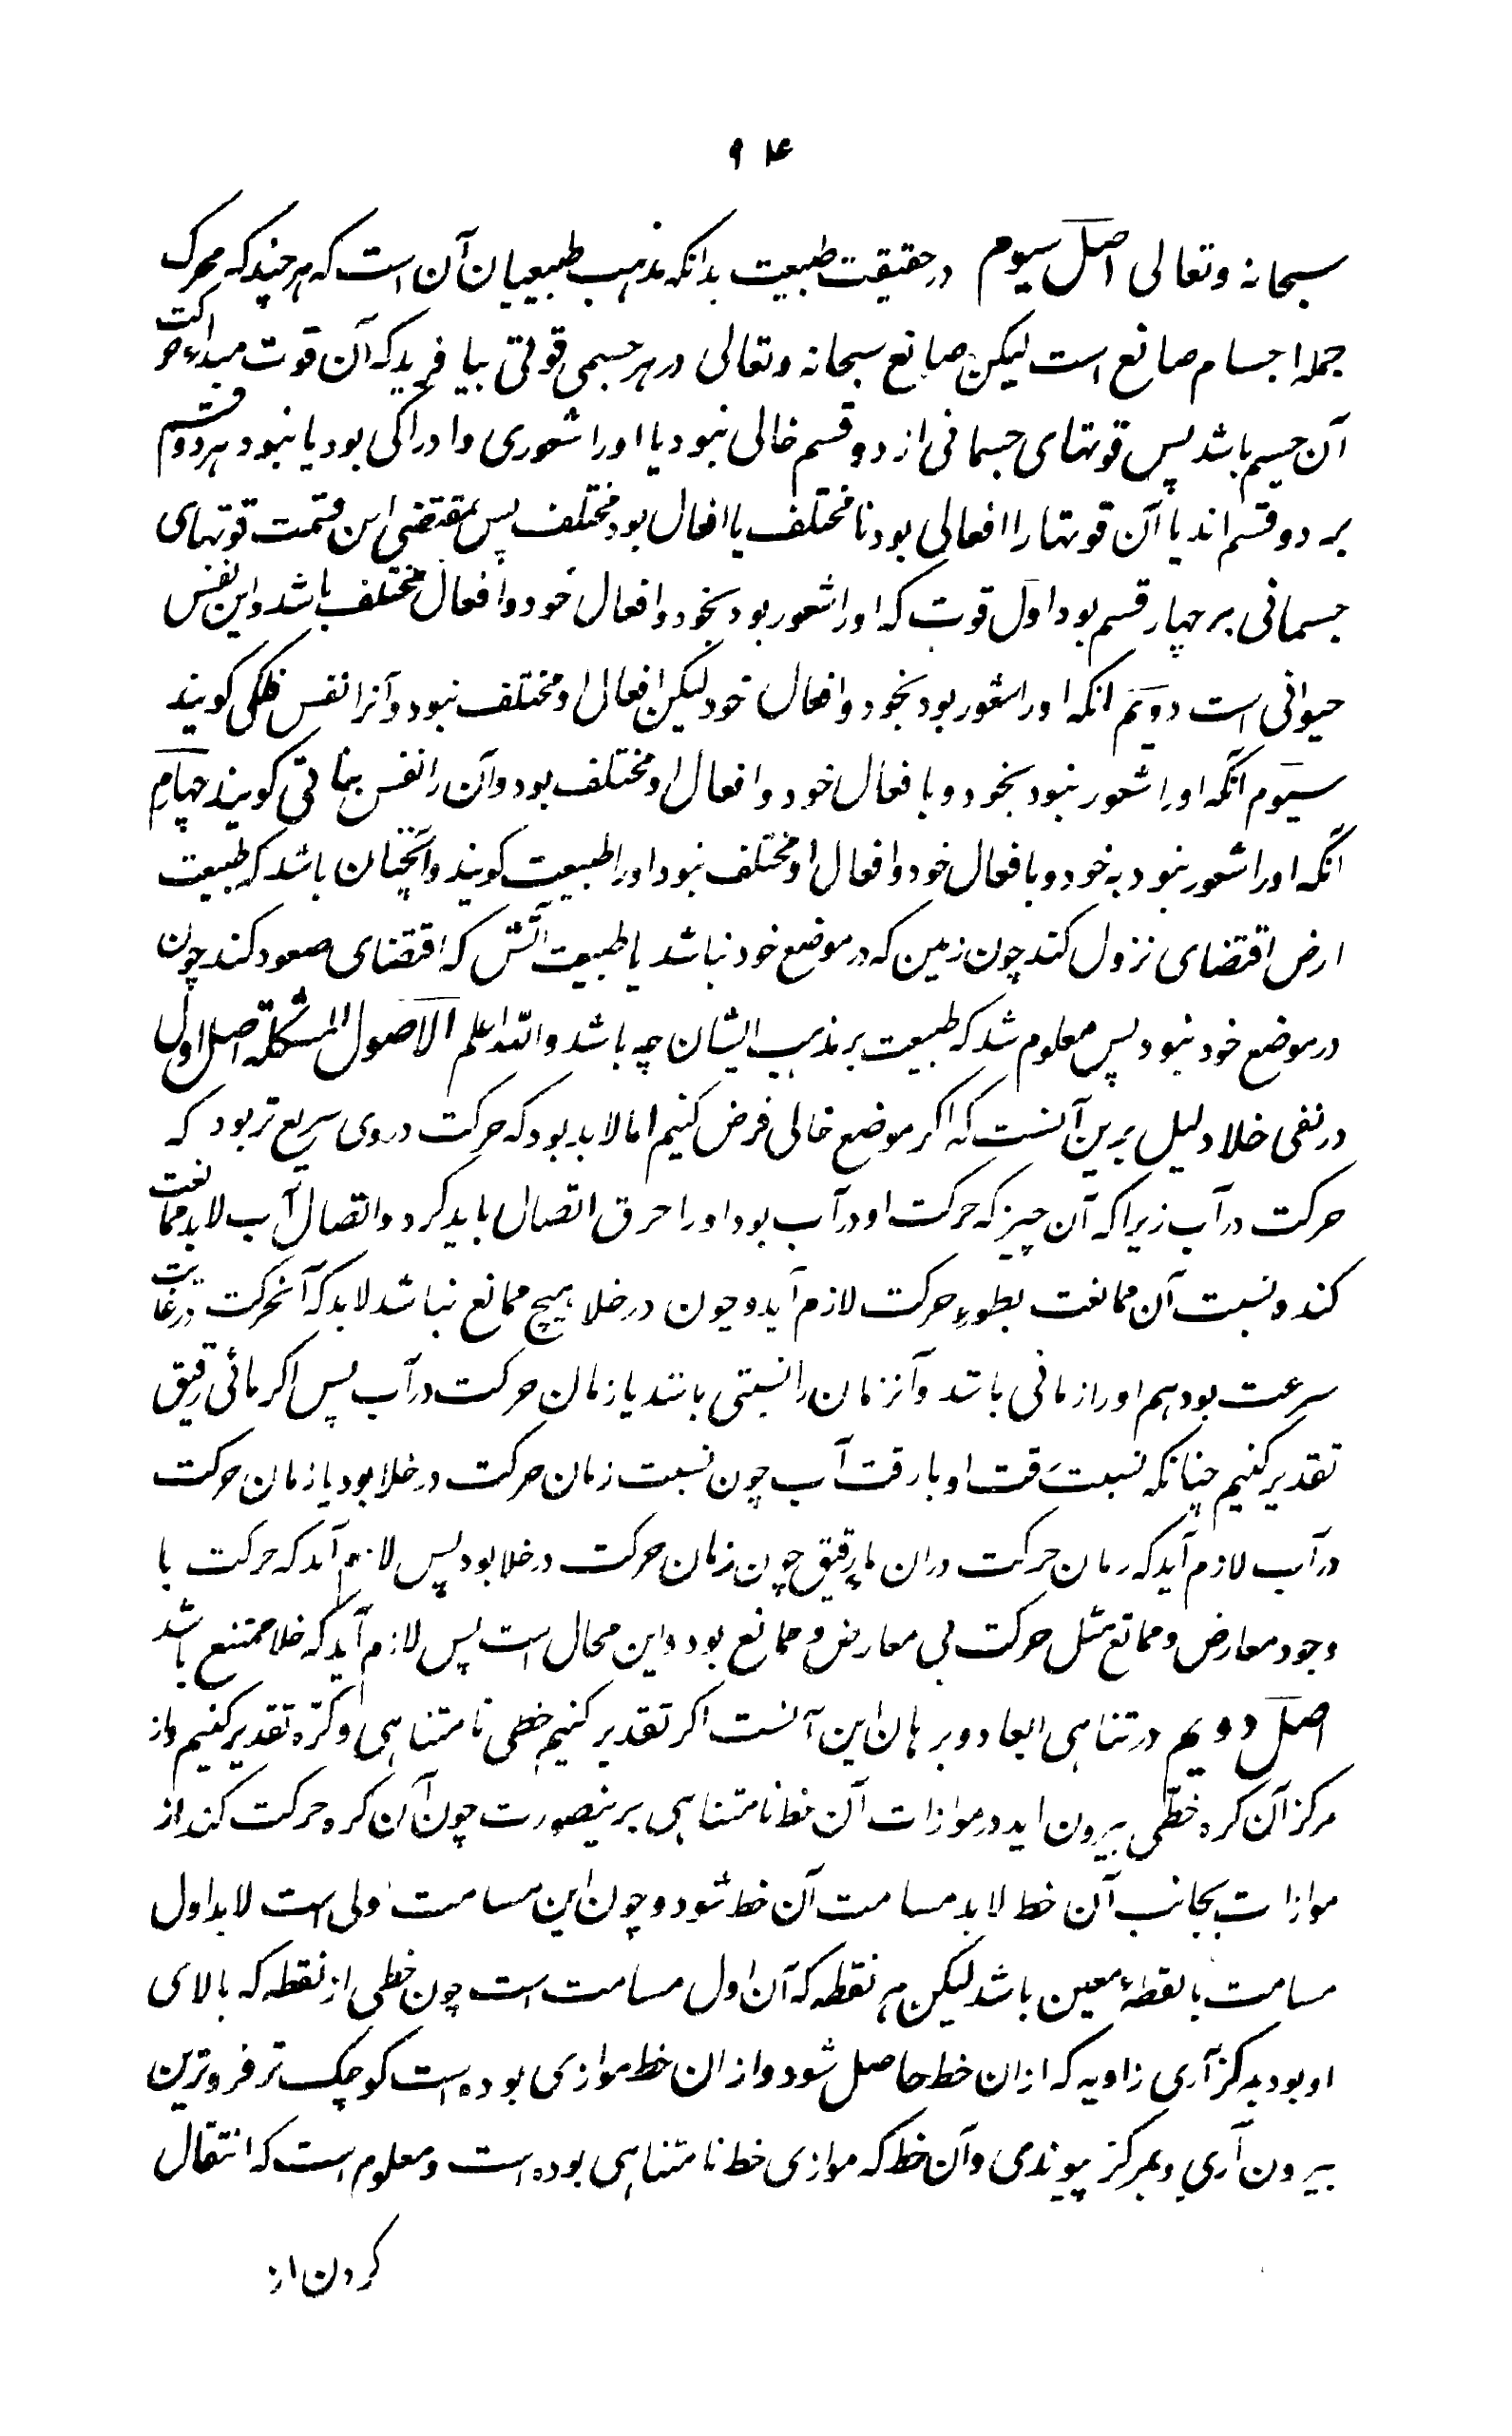 ۹۴
سبحانه وتعالی اصل سیوم در حقیقت طبیعت بدانکه مذهب طبیعیان آن است که هر چند که محرک
جمله اجسام صانع است لیکن صانع سبحانه وتعالی در هر جسمی قوتی بیافرید که آن قوت مبداء حرکت
آن جسم باشد پس قوتهای جسمانی از دو قسم خالی نبود یا اورا شعوری وادراکی بود یا نبود هر دو قسم
بر دو قسم اند یا آن قوتها را افعالی بود نا مختلف یا افعال بود مختلف پس بمقتضی این قسمت قوتهای
جسمانی بر چهار قسم بود اول قوت که اورا شعور بود بخود وافعال خود وافعال مختلف باشد واین نفس
حیوانی است دویم انکه اورا شعور بود بخود وافعال خود لیکن افعال او مختلف نبود وآنرا نفس فلکی کویند
سیوم آنکه اورا شعور نبود بخود و بافعال خود وافعال او مختلف بود وآن را نفس نباتی کویند چهارم
انکه اورا شعور نبود به خود و بافعال خود وافعال او مختلف نبود اورا طبیعت کویند وآنچنان باشد که طبیعت
ارض اقتضای نزول کند چون زمین که در موضع خود نباشد یا طبیعت آتش که اقتضای صعود کند چون
در موضع خود نبود پس معلوم شد که طبیعت بر مذهب ایشان چه باشد والله اعلم الاصول المشکلة اصل اول
در نفی خلا دلیل برین آنست که اکر موضع خالی فرض کنیم اما لابد بود که حرکت در وی سریع تر بود که
حرکت در آب زیرا که آن چیز که حرکت او در آب بود اورا خرق اتصال باید کرد واتصال آب لابد ممانعت
کند ونسبت آن ممانعت بطوء حرکت لازم آید وچون در خلا هیچ ممانع نباشد لابد که آنحرکت در غایت
سرعت بود هم اورا زمانی باشد وآنزمان را نسبتی باشد با زمان حرکت در آب پس اکر مائی رقیق
تقدیر کنیم چنانکه نسبت رقت او با رقت آب چون نسبت زمان حرکت در خلا بود با زمان حرکت
در آب لازم آید که زمان حرکت در ان ماء رقیق چون زمان حرکت در خلا بود پس لازم آید که حرکت با
وجود معارض وممانع مثل حرکت بی معارض وممانع بود واین محال است پس لازم آید که خلا ممتنع باشد
اصل دویم در تناهی ابعاد وبرهان این آنست اکر تقدیر کنیم خطی نامتناهی وکرّه تقدیر کنیم واز
مرکز آن کره خطّی بیرون اید در موازات آن خط نامتناهی برینصورت چون آن کره حرکت کند از
موازات بجانب آن خط لابد مسامت آن خط شود وچون این مسامت اولی است لابد اول
مسامت با نقطهٔ معین باشد لیکن هر نقطه که آن اول مسامت است چون خطی از نقطه که بالای
او بود بمرکز آری زاویه که از ان خط حاصل شود واز ان خط موازی بوده است کوچک تر فروترین
بیرون آری وبمرکز پیوندی وآن خط که موازی خط نامتناهی بوده است ومعلوم است که انتقال
کردن از